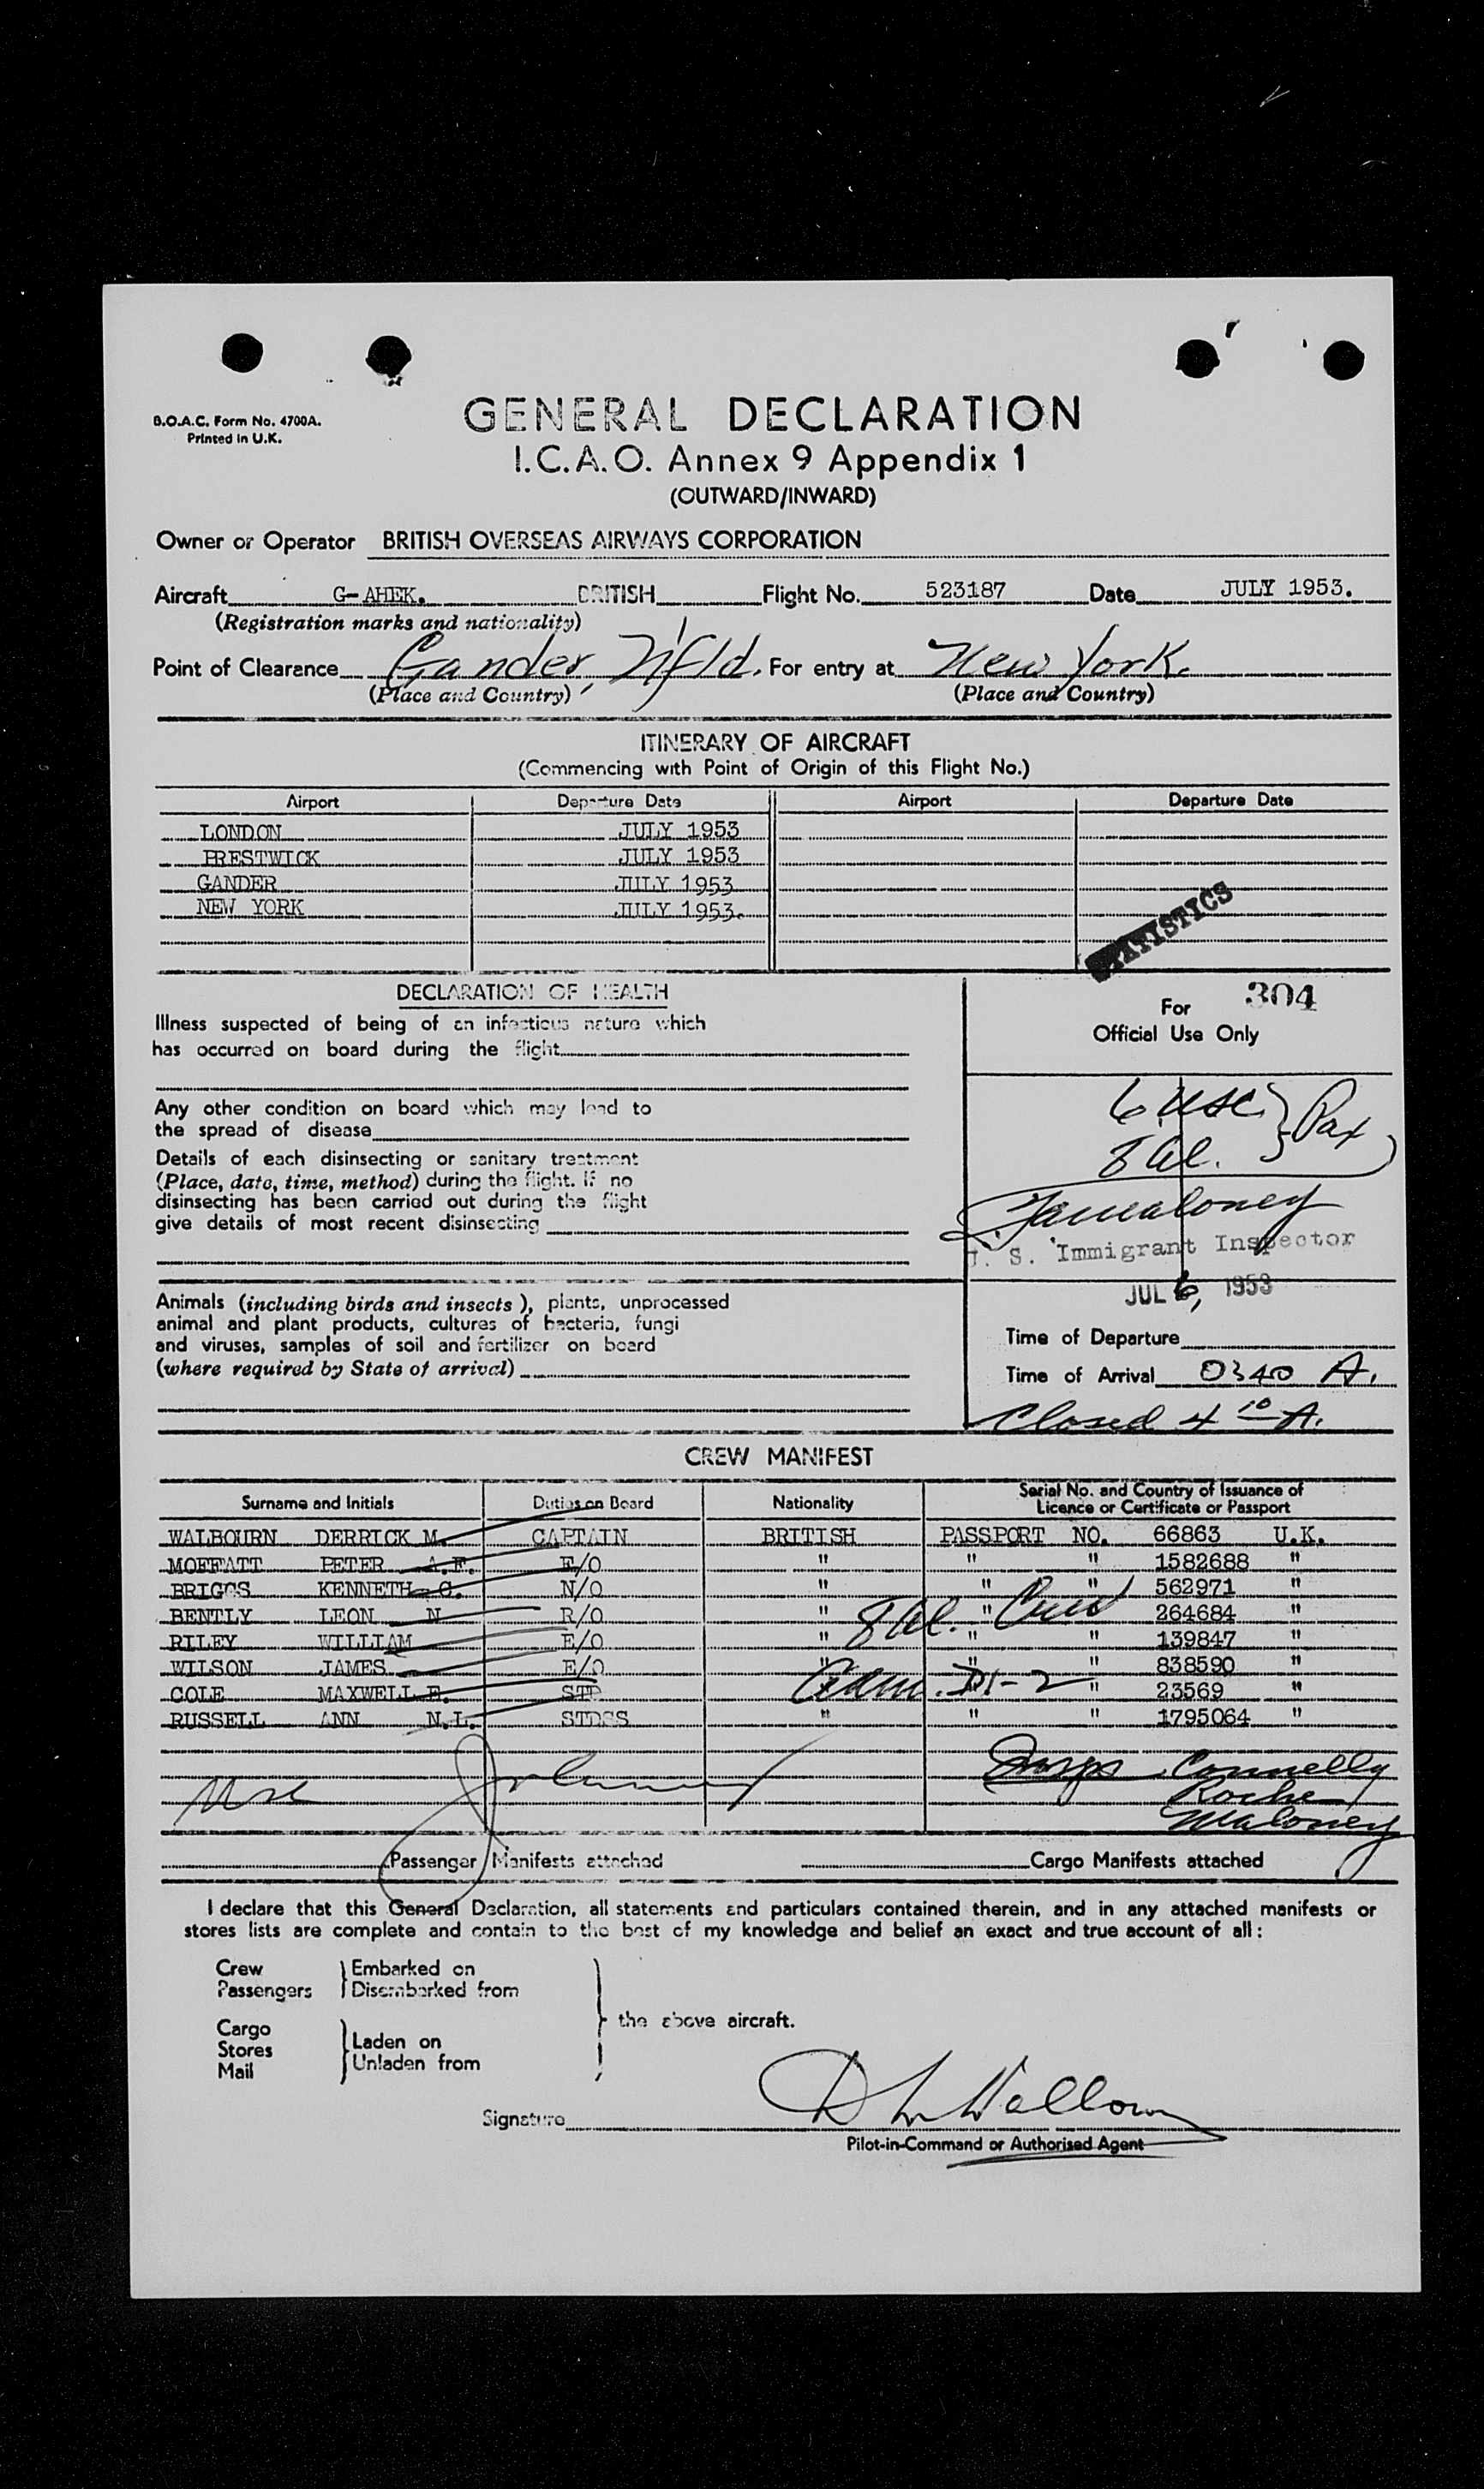 B.O.A.C. Form No. 4700A.
Printed in U.K.
GENERAL DECLARATION
I.C.A.O. Annex 9 Appendix 1
(OUTWARD/INWARD)
Owner or Operator BRITISH OVERSEAS AIRWAYS CORPORATION
Aircraft G-AHEK. BRITISH Flight No. 523187 Date JULY 1953.
(Registration marks and nationality)
Point of Clearance Gander, N'fld. For entry at New York.
(Place and Country) (Place and Country)
ITINERARY OF AIRCRAFT
(Commencing with Point of Origin of this Flight No.)
Airport Departure Date Airport Departure Date
LONDON JULY 1953
PRESTWICK JULY 1953
GANDER JULY 1953
NEW YORK JULY 1953.
STATISTICS
DECLARATION OF HEALTH
Illness suspected of being of an infectious nature which
has occurred on board during the flight
Any other condition on board which may lead to
the spread of disease
Details of each disinsecting or sanitary treatment
(Place, date, time, method) during the flight. If no
disinsecting has been carried out during the flight
give details of most recent disinsecting
Animals (including birds and insects), plants, unprocessed
animal and plant products, cultures of bacteria, fungi
and viruses, samples of soil and fertilizer on board
(where required by State of arrival)
For 304
Official Use Only
6 usc } Pax
8 al.
U. S. Immigrant Inspector
JUL 6, 1953
Time of Departure
Time of Arrival 0340 A.
Closed 4 10 A.
CREW MANIFEST
Surname and Initials Duties on Board Nationality Serial No. and Country of Issuance of
Licence or Certificate or Passport
WALBOURN DERRICK M. CAPTAIN BRITISH PASSPORT NO. 66863 U.K.
MOFFATT PETER A.F. F/O " " " 1582688 "
BRIGGS KENNETH G. N/O " " " 562971 "
BENTLY LEON N R/O " " " 264684 "
RILEY WILLIAM E/O " " " 139847 "
WILSON JAMES E/O " " " 838590 "
COLE MAXWELL E. STD " " " 23569 "
RUSSELL ANN N.L. STDSS " " " 1795064 "
8 al. Crew
Adm. D1-2
Insps Connelly
Roche
Maloney
Passenger Manifests attached Cargo Manifests attached
I declare that this General Declaration, all statements and particulars contained therein, and in any attached manifests or
stores lists are complete and contain to the best of my knowledge and belief an exact and true account of all :
Crew } Embarked on
Passengers } Disembarked from
the above aircraft.
Cargo
Stores } Laden on
Mail } Unladen from
Signature
Pilot-in-Command or Authorised Agent